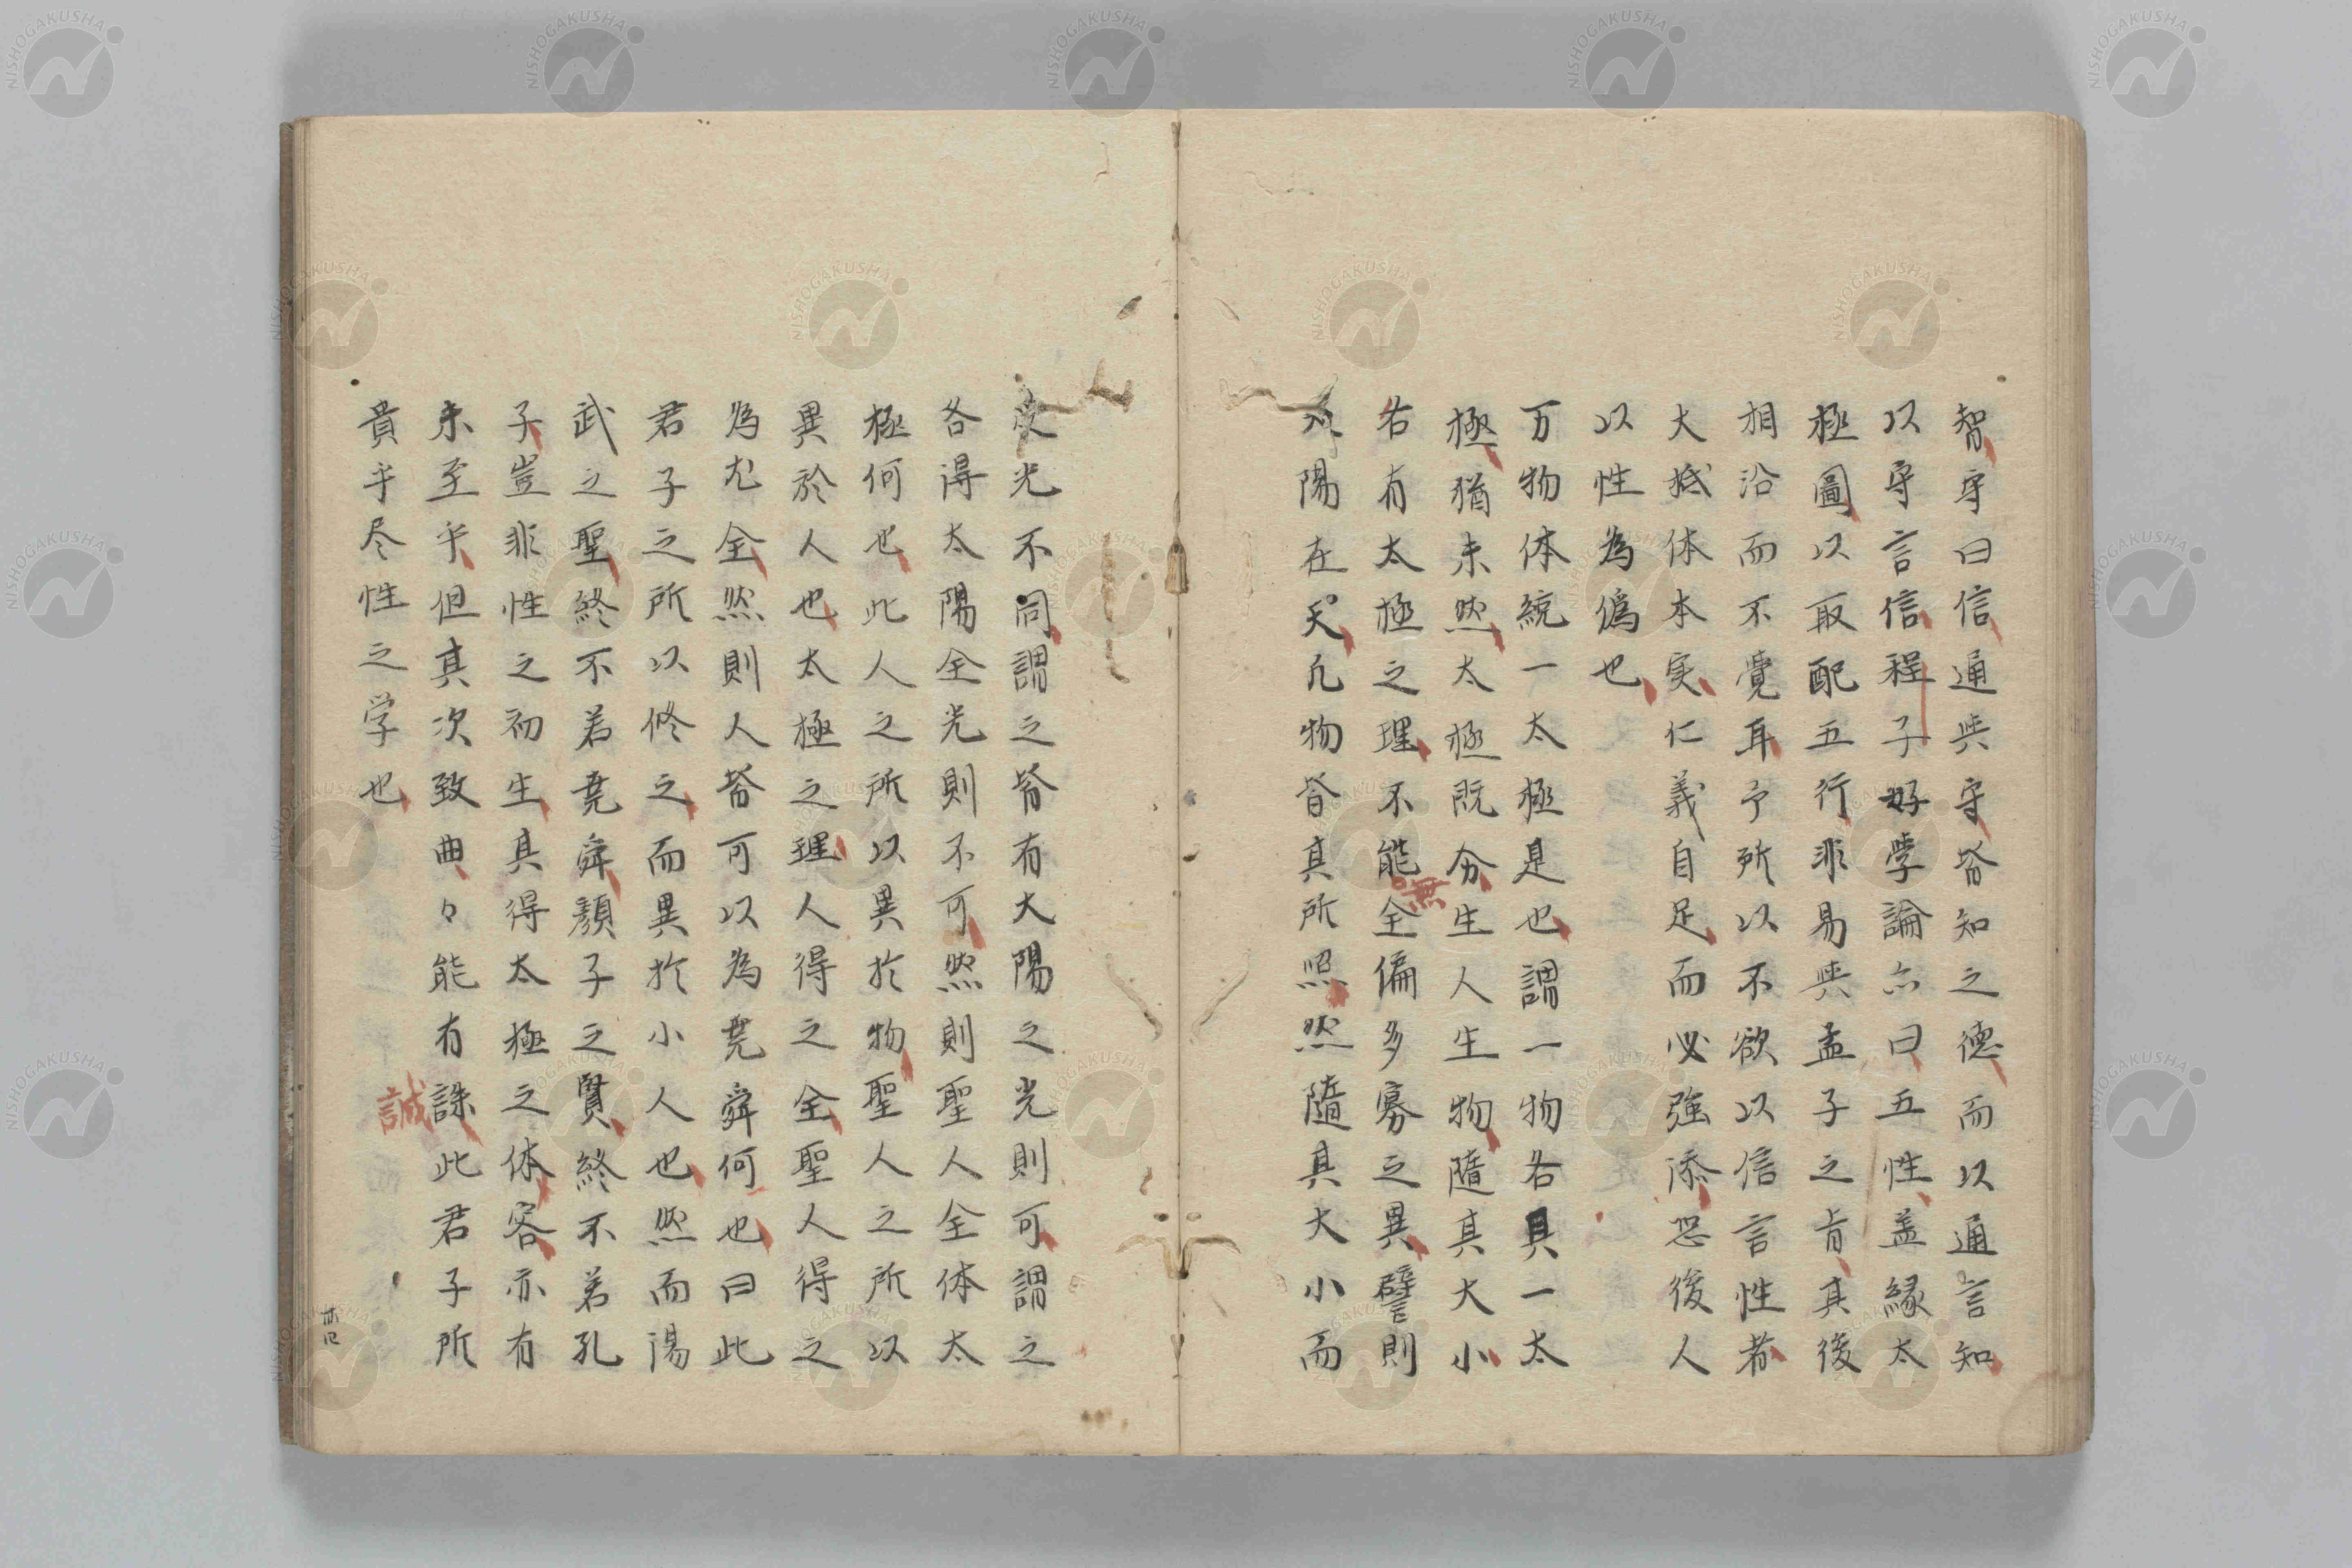 智守曰信通与守皆知之德而以通言知
以守言信程子好学論亦曰五性盖縁太
極圖以取配五行非易与孟子之旨其後
相沿而不覺耳予所以不欲以信言性者
大抵体本実仁義自足而必強添恐後人
以性為偽也
万物体統一太極是也謂一物各具一太
極猶未然太極既分生人生物隨其大小
各有太極之理不能無全偏多寡之異譬則
太陽在天凡物皆其所照然隨其大小而
受光不同謂之皆有大陽之光則可謂之
各得太陽全光則不可然則聖人全体太
極何也此人之所以異於物聖人之所以
異於人也太極之理人得之全聖人得之
為尤全然則人皆可以為堯舜何也曰此
君子之所以修之而異於小人也然而湯
武之聖終不若堯舜顏子之賢終不若孔
子豈非性之初生其得太極之体容亦有
未至乎但其次致曲々能有誠此君子所
貴乎尽性之学也
誠
NISHOGAKUSHA